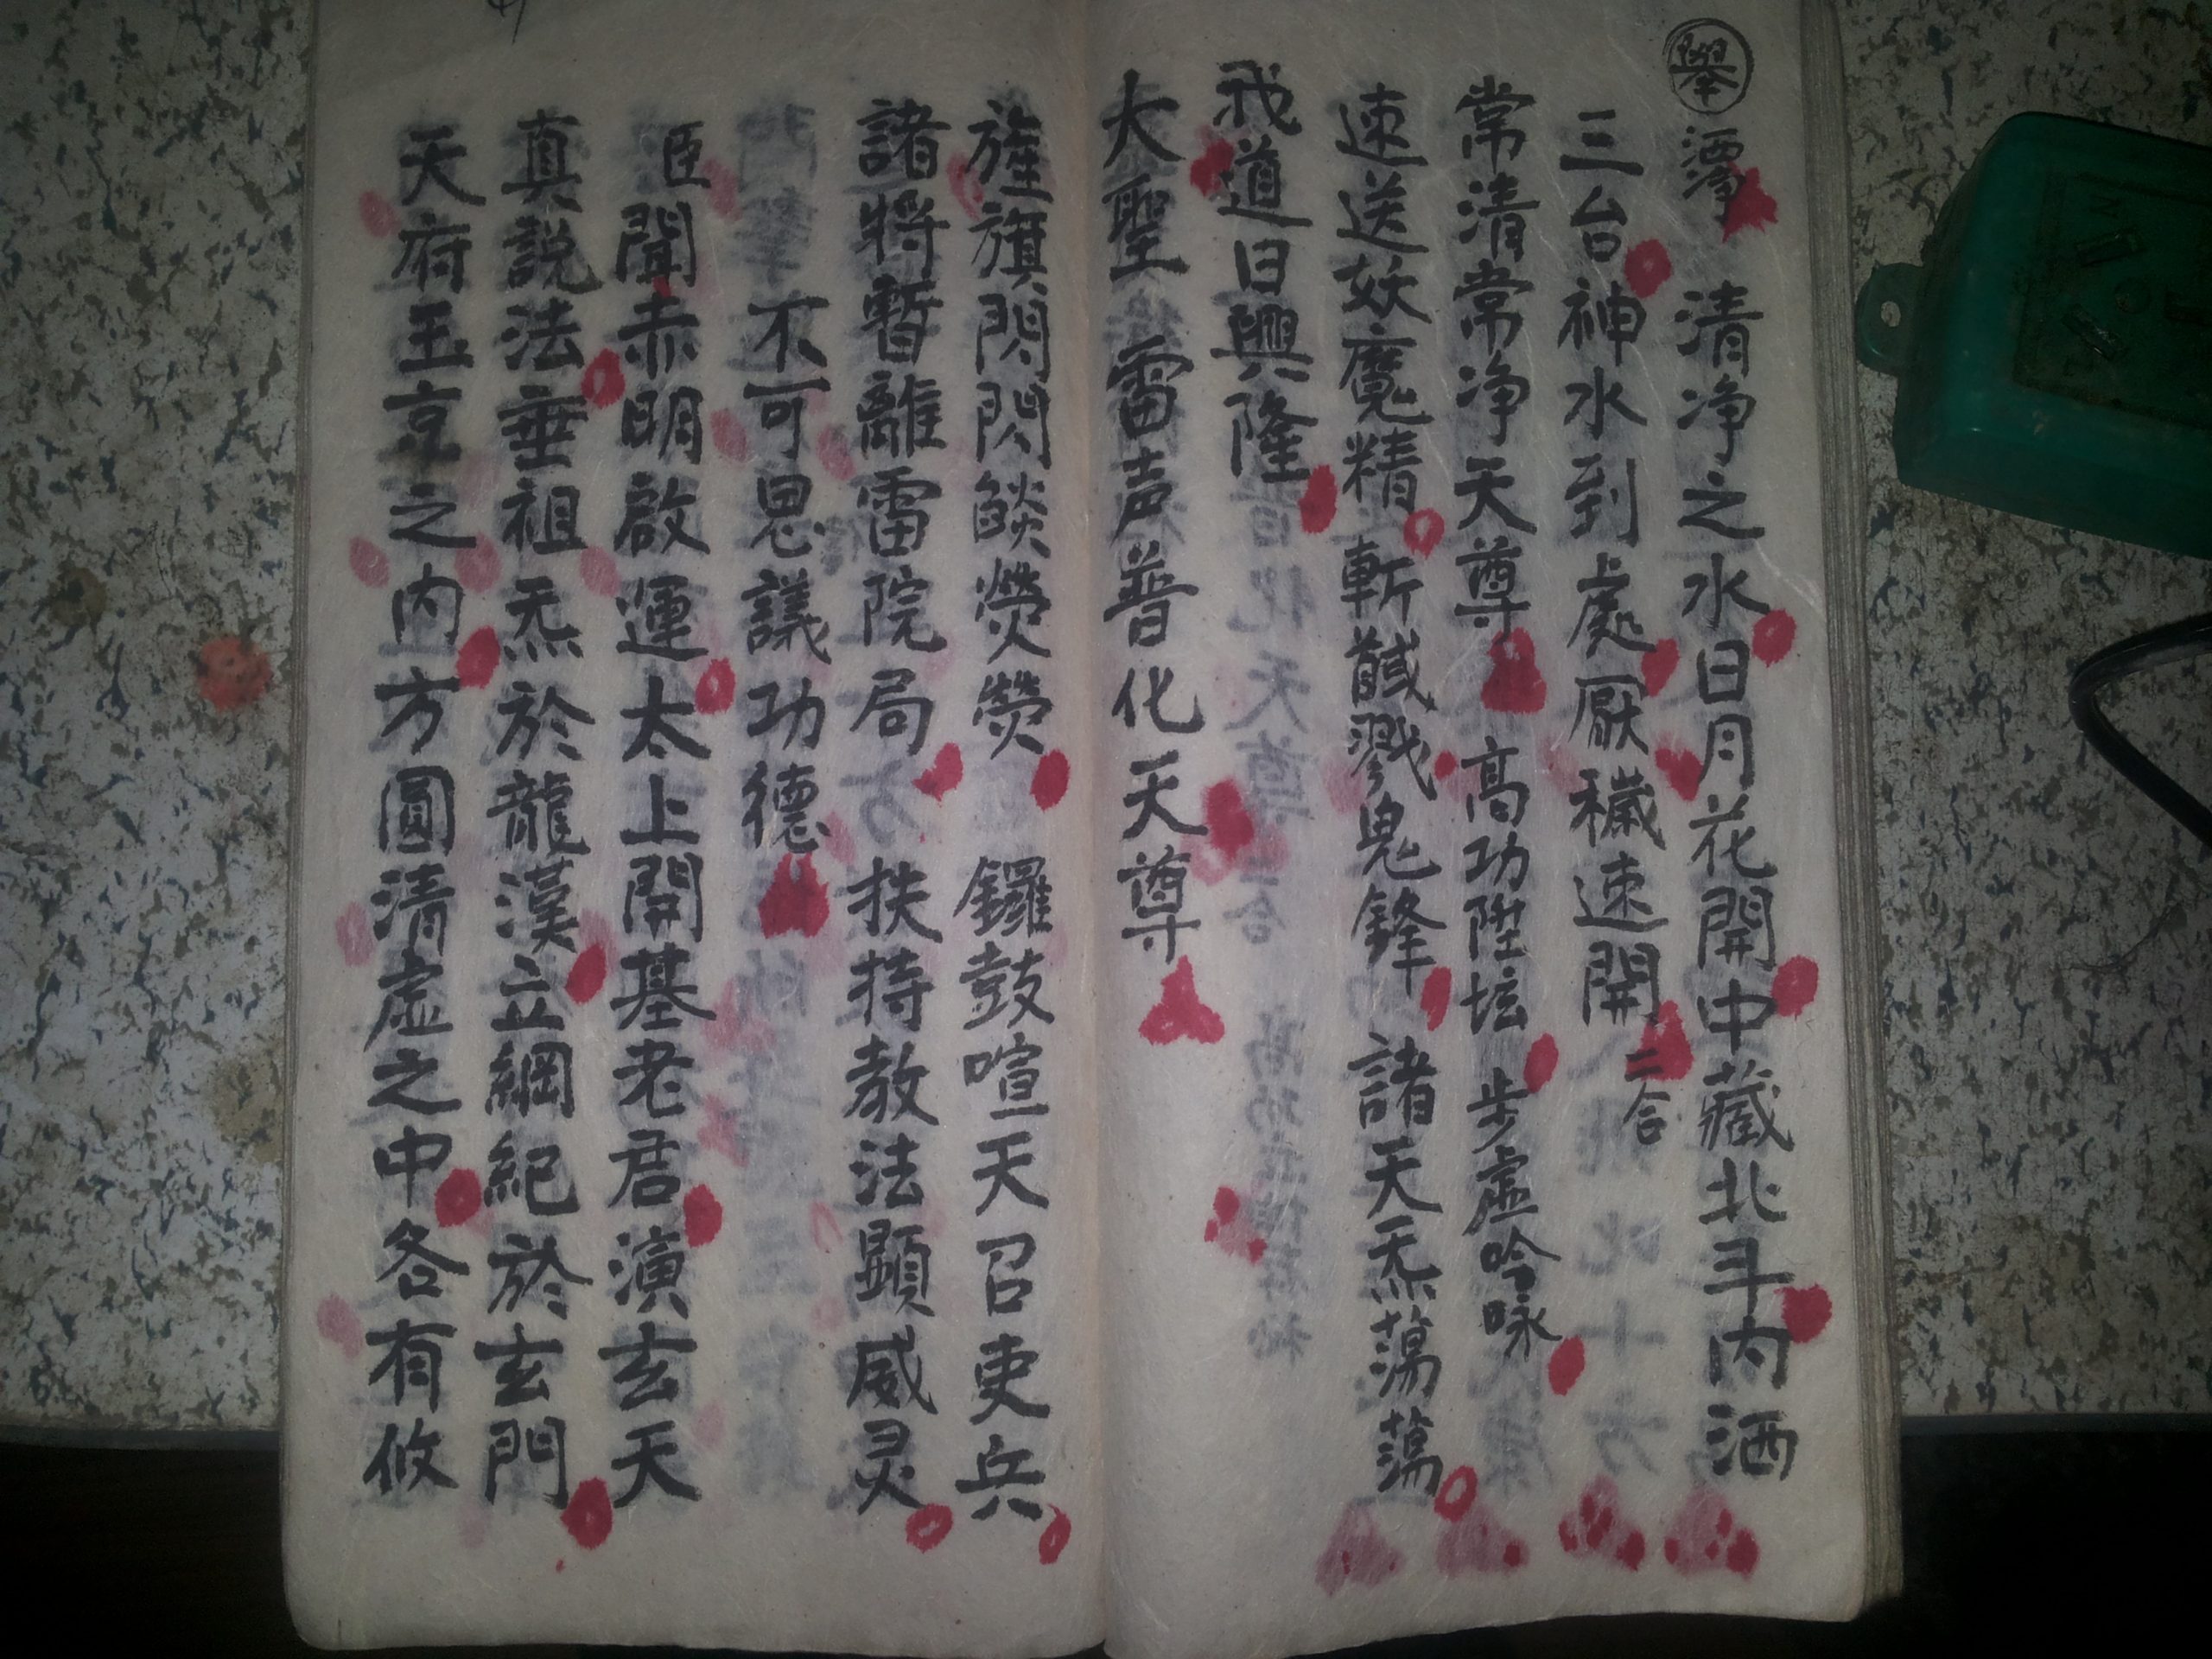 舉 洒淨 清净之水日月花開中藏北斗内洒
三台神水到處厭穢速開 二合
常清常常净天尊 高功陞坛 步虚吟咏
速送妖魔精 斬馘戮鬼鋒 諸天炁蕩蕩
我道日興隆
大聖 雷声普化天尊
旌旗閃閃燄熒熒 鑼鼓喧天召吏兵
諸將暫離雷院局 扶持教法顯威灵
不可思議功德
臣聞赤明啟運太上開基老君演玄天
真説法垂祖炁於龍漢立綱紀於玄門
天府玉京之内方圓清虚之中各有攸